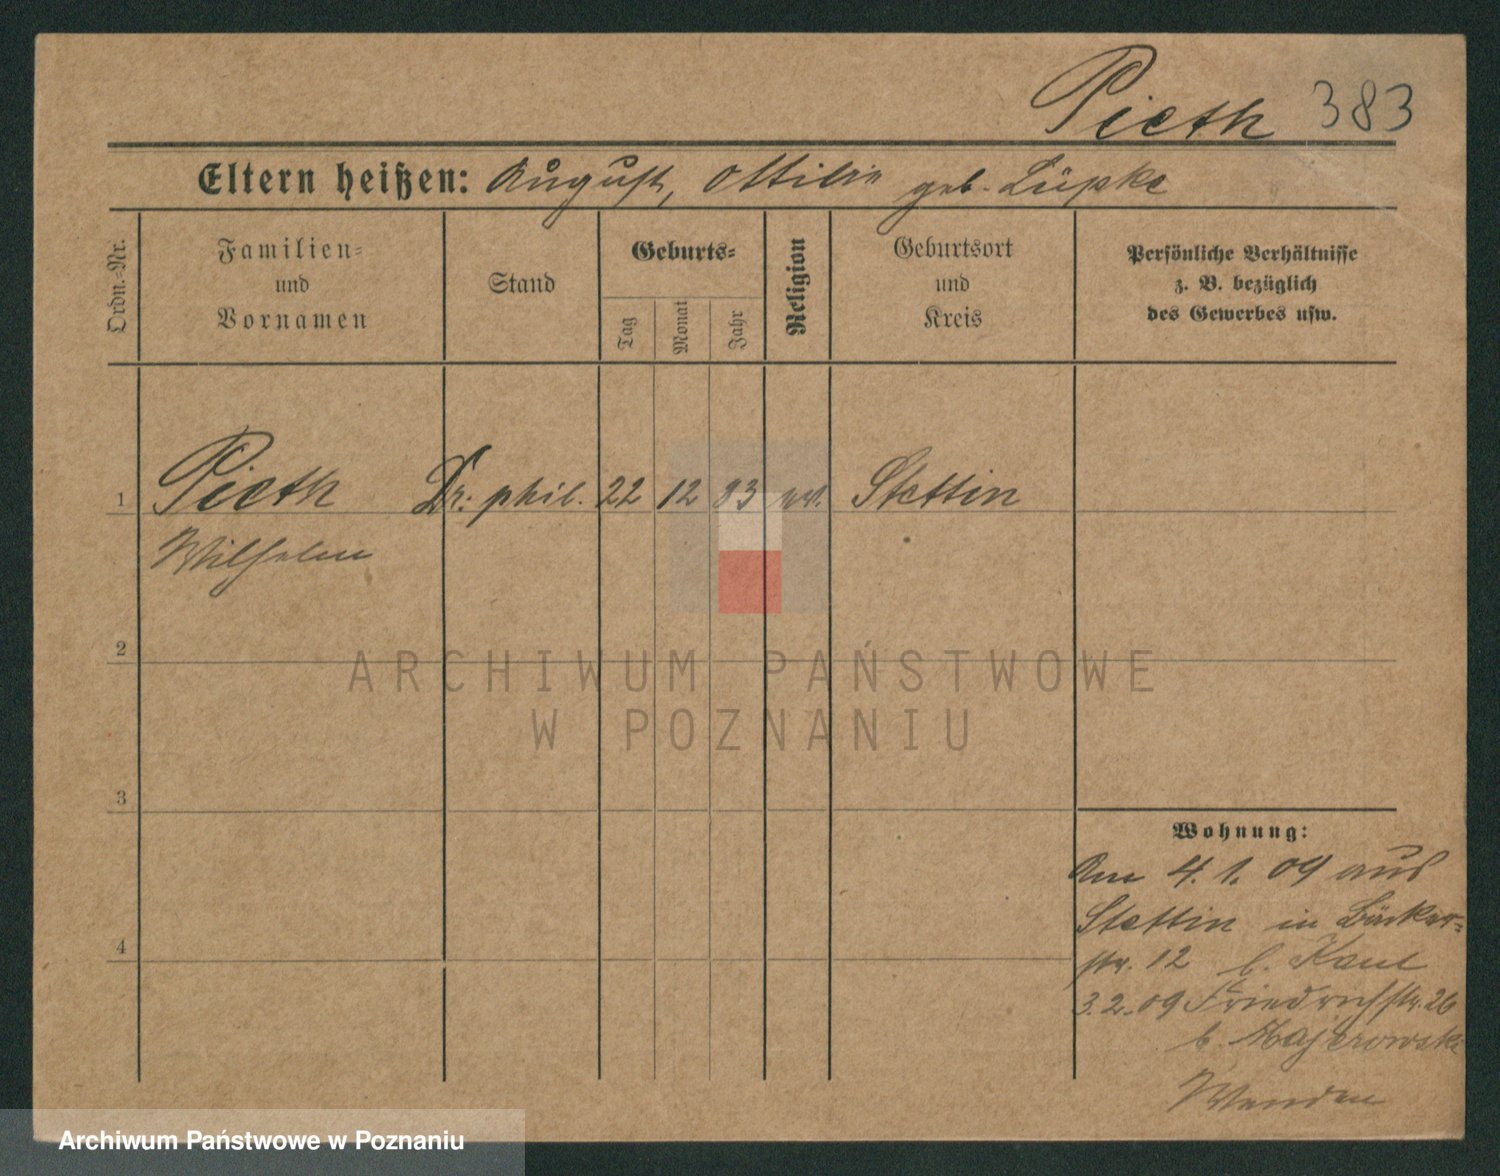 Pieth 383
Eltern heißen: August, Ottilie geb. Lüpke
Ordn.-Nr.
Familien-
und
Vornamen
Stand
Geburts-
Tag
Monat
Jahr
Religion
Geburtsort
und
Kreis
Persönliche Verhältnisse
z. B. bezüglich
des Gewerbes usw.
1 Pieth Dr. phil. 22 12 83 ev. Stettin
Wilhelm
2
ARCHIWUM PAŃSTWOWE
W POZNANIU
3
Wohnung:
Am 4. 1. 09 aus
Stettin in Bäcker-
4
str. 12 b.
3.2.09 Friedrichstr. 26
b. Majerowski
Archiwum Państwowe w Poznaniu